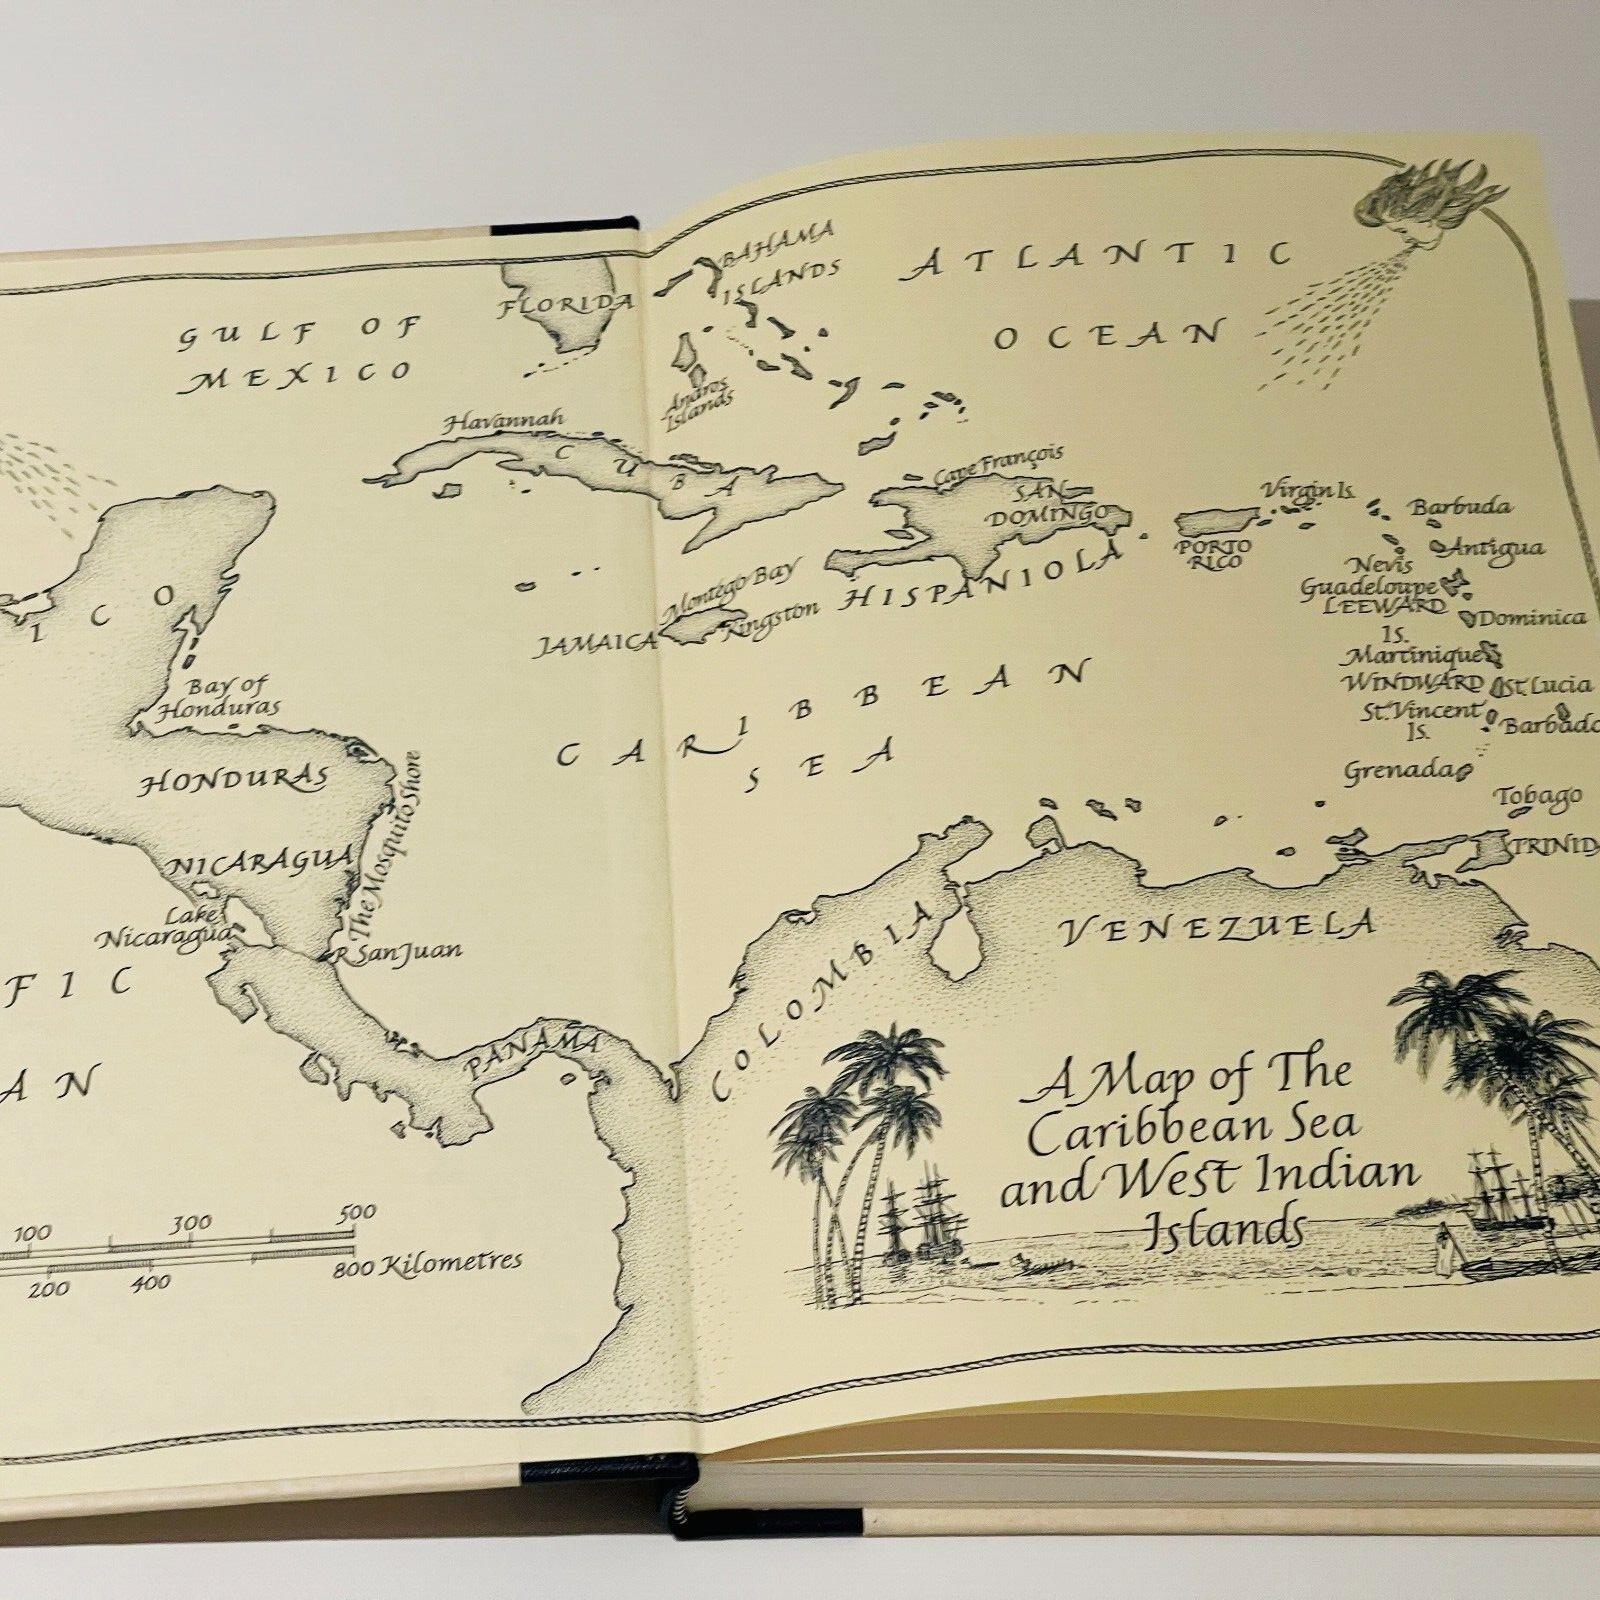 GULF OF
MEXICO
FLORIDA
BAHAMA
ISLANDS
ATLANTIC
OCEAN
Andros
Islands
Havannah
CUBA
Cape François
SAN
DOMINGO
HISPANIOLA
PORTO
RICO
Virgin Is.
Barbuda
Antigua
Nevis
Guadeloupe
LEEWARD
Is.
Dominica
Martinique
WINDWARD
St. Lucia
St. Vincent
Is.
Barbado
Grenada
Tobago
TRINID
Montego Bay
JAMAICA
Kingston
CARIBBEAN
SEA
ICO
Bay of
Honduras
HONDURAS
The Mosquito Shore
NICARAGUA
Lake
Nicaragua
R San Juan
FIC
AN
PANAMA
COLOMBIA
VENEZUELA
A Map of The
Caribbean Sea
and West Indian
Islands
100 300 500
200 400 800 Kilometres